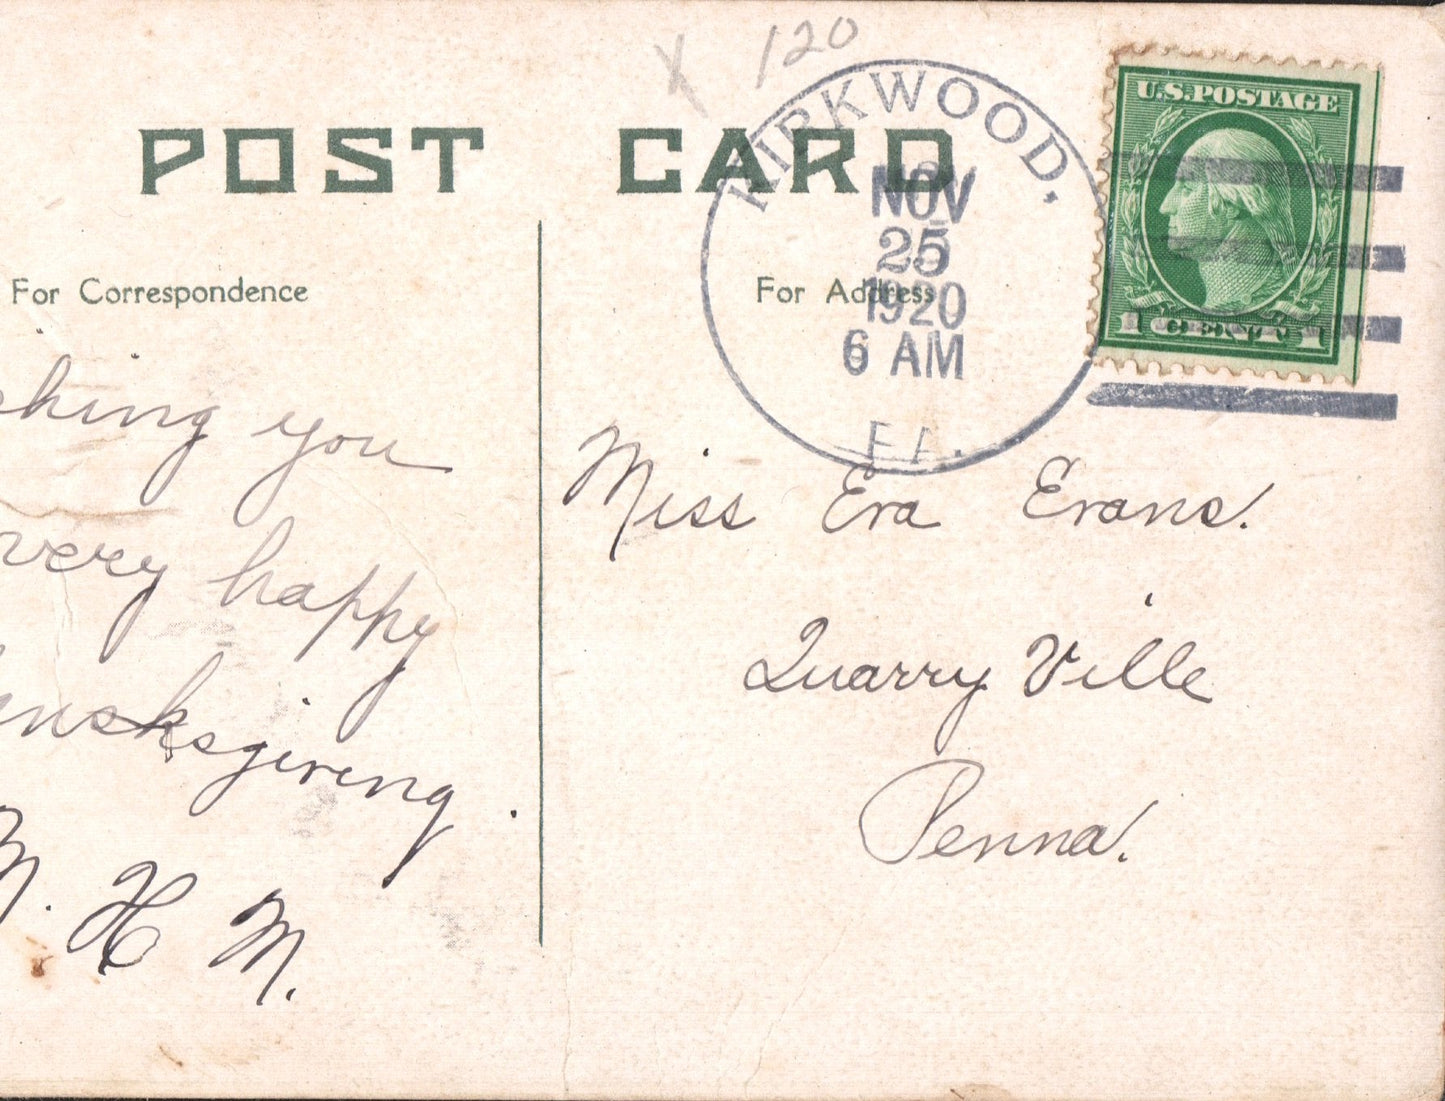 X 120
POST CARD
KIRKWOOD,
NOV
25
1920
6 AM
PA.
U.S. POSTAGE
1 CENT 1
For Correspondence
For Address
you
very happy
M. H. M.
Miss Eva Evans.
Quarry Ville
Penna.